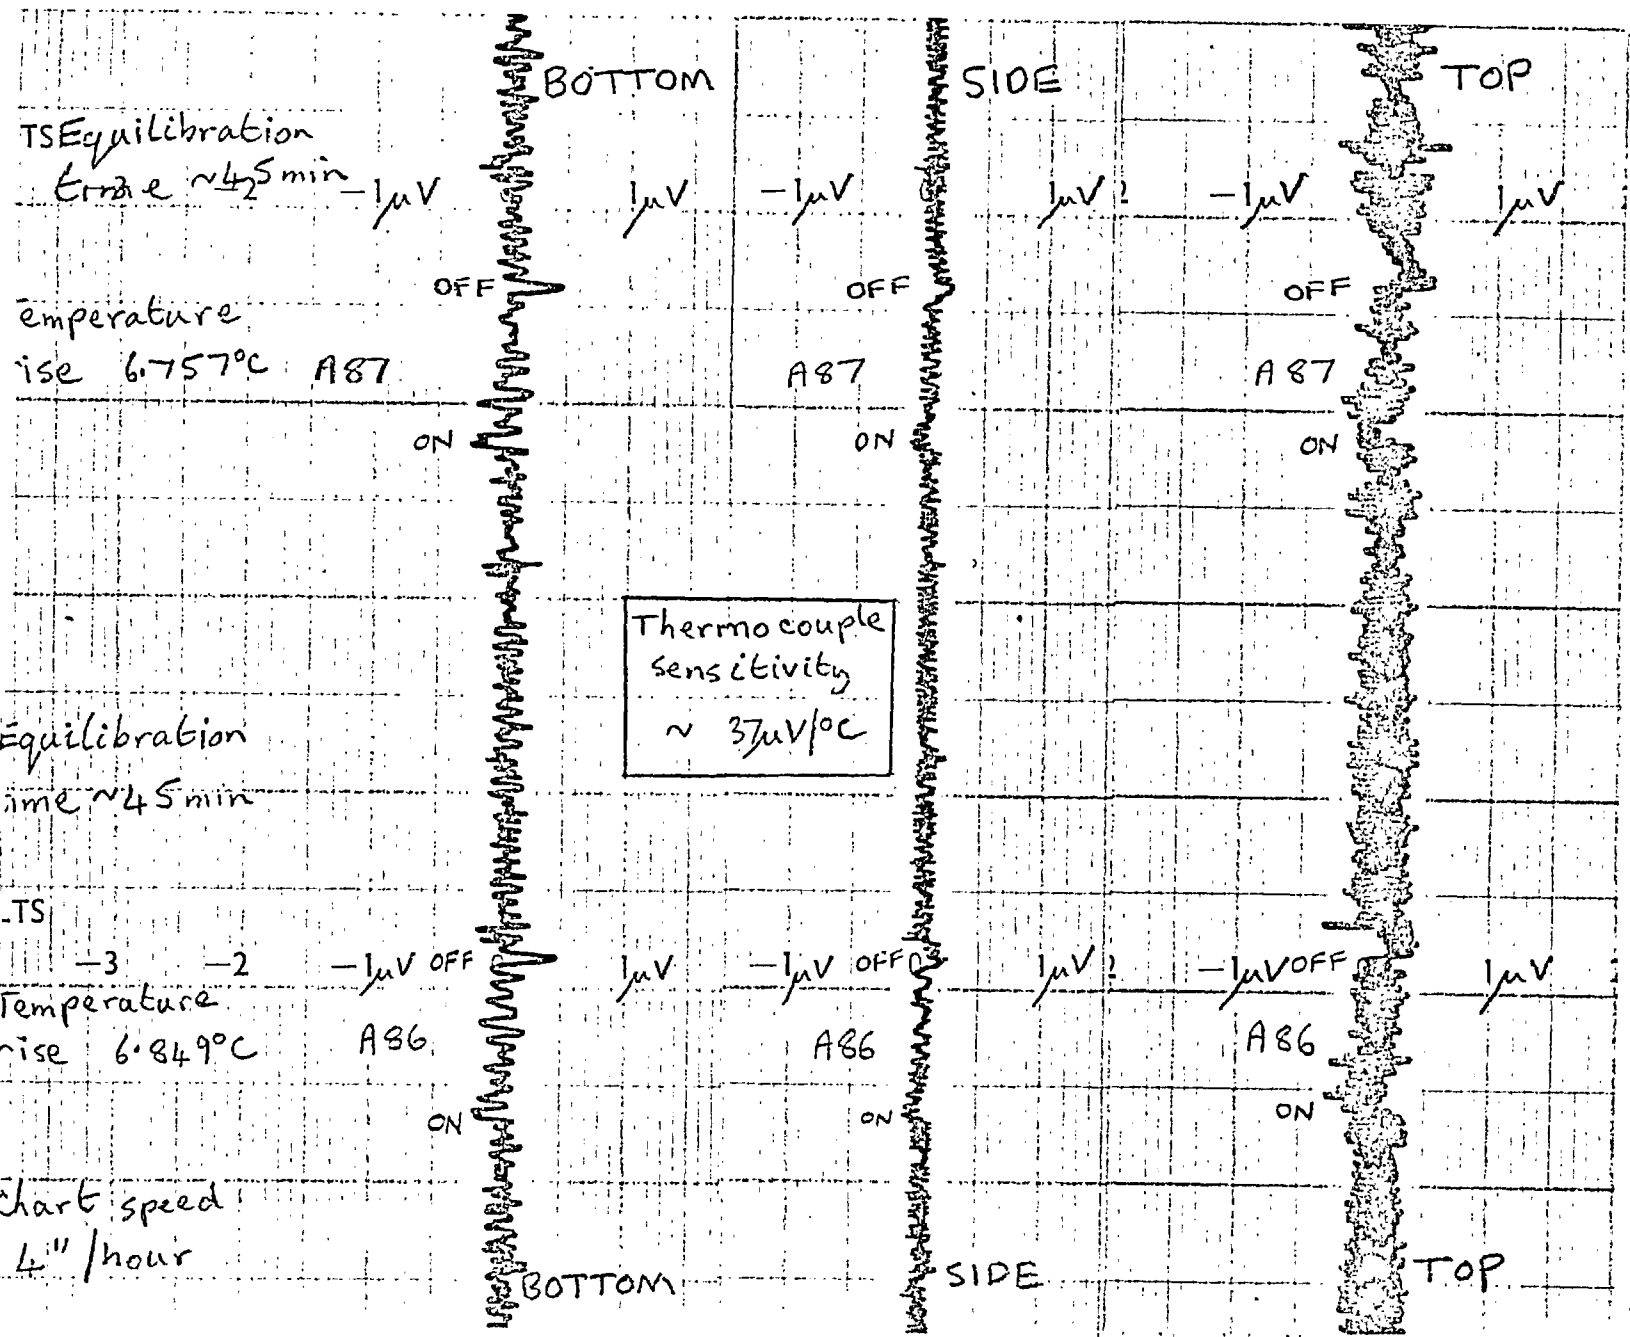 BOTTOM SIDE TOP
TS Equilibration
time ~45min -1μV 1μV -1μV 1μV -1μV 1μV
OFF OFF OFF
emperature
ise 6.757°C A87 A87 A87
ON ON ON
Thermocouple
sensitivity
~ 37μV/°C
Equilibration
ime ~45min
TS
-3 -2 -1μV OFF 1μV -1μV OFF 1μV -1μV OFF 1μV
Temperature
rise 6.849°C A86 A86 A86
ON ON ON
Chart speed
4"/hour
BOTTOM SIDE TOP